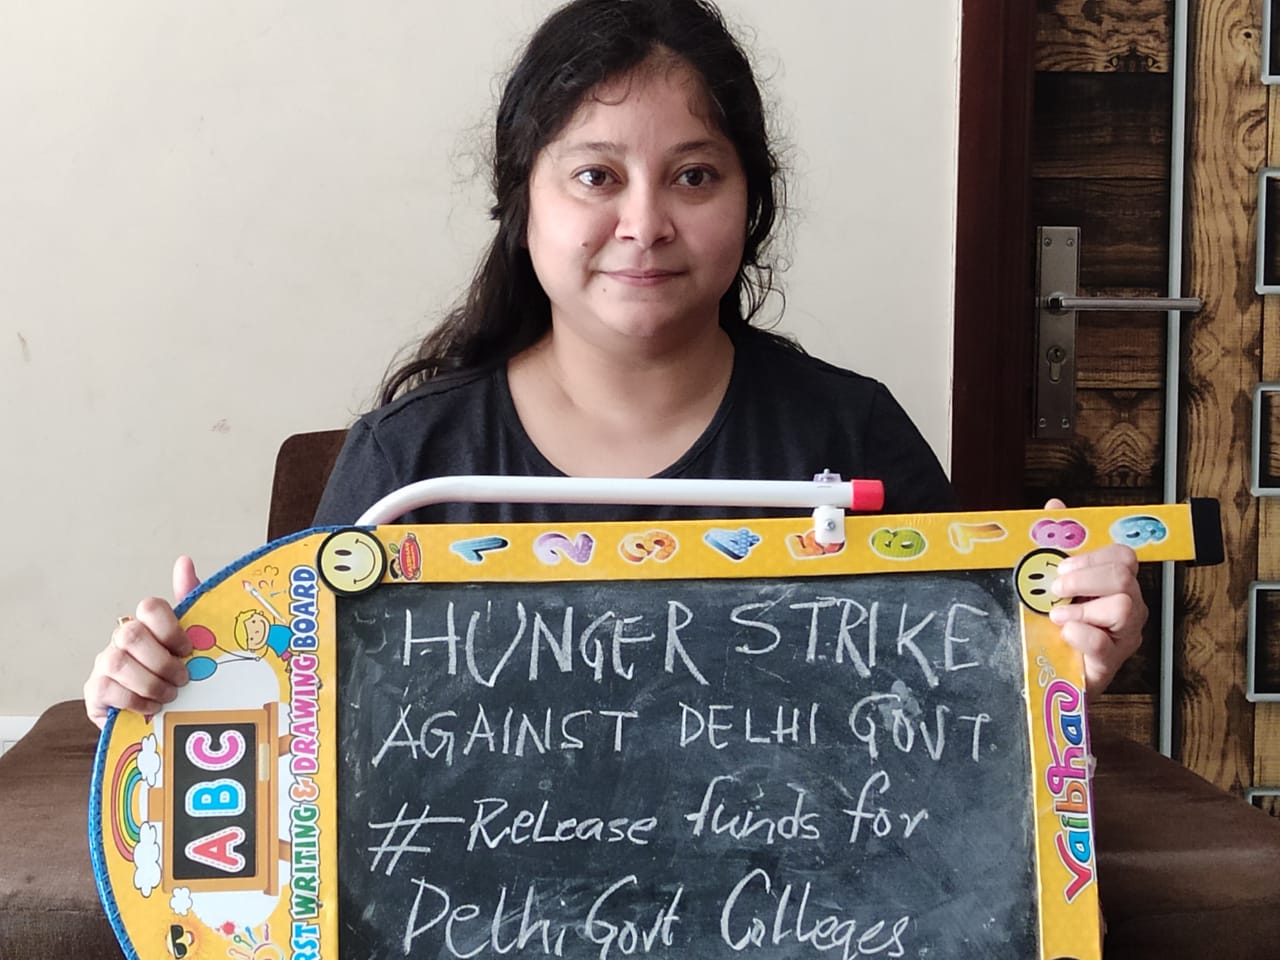 1 2 3 4 5 6 7 8 9
HUNGER STRIKE
AGAINST DELHI GOVT
# Release funds for
Delhi Govt Colleges
WRITING & DRAWING BOARD
ABC
Vaibhav
123